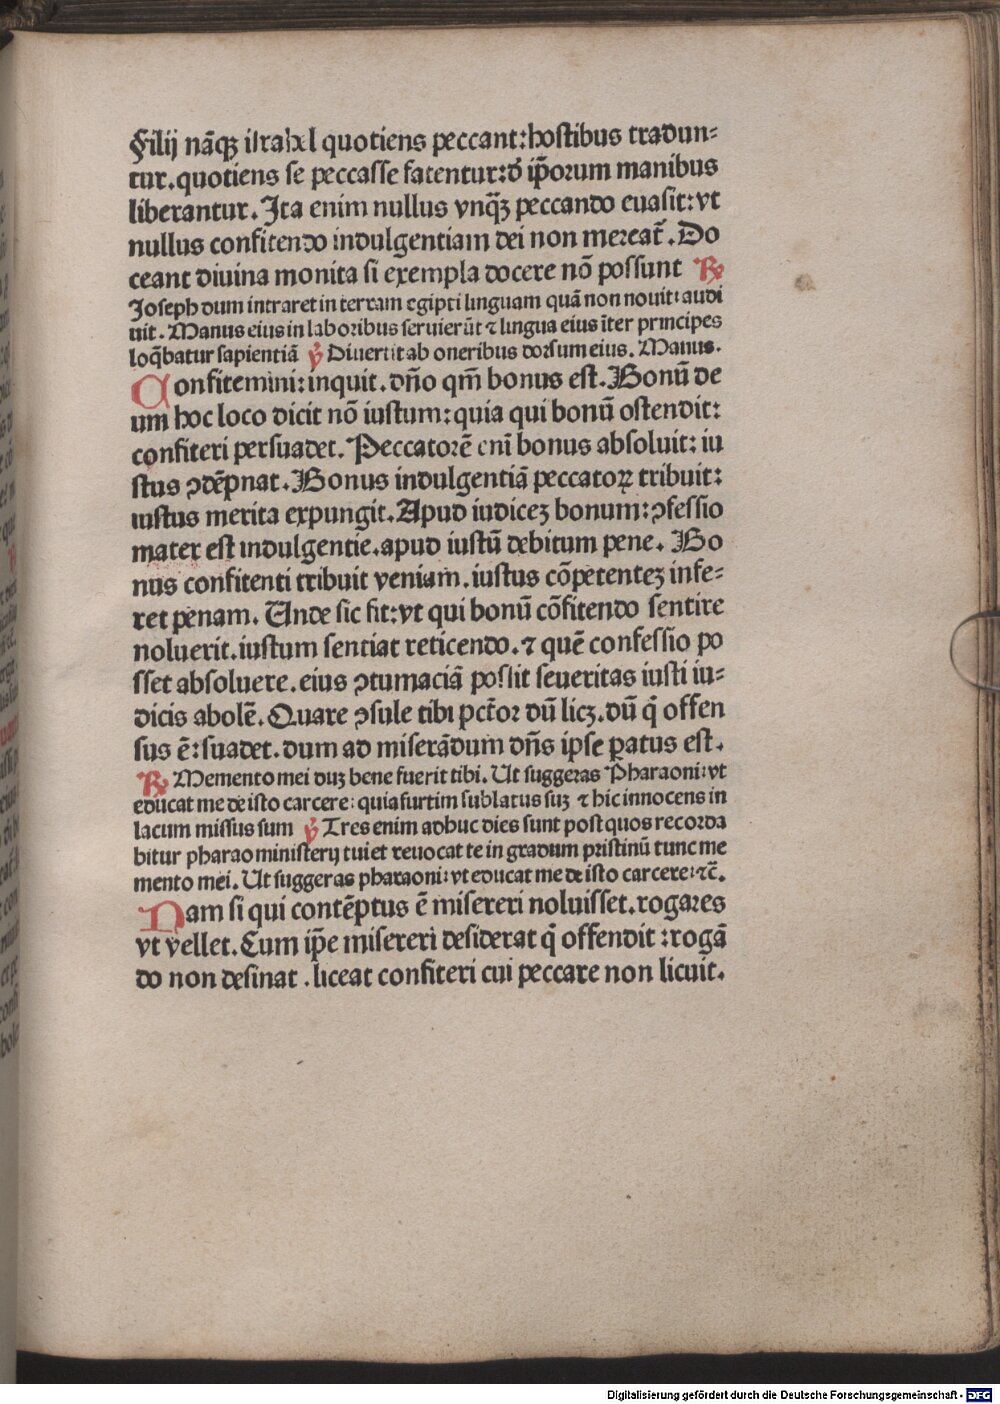 Filij nāqꝫ israhel quotiens peccant: hostibus tradun⸗
tur. quotiens se peccasse fatentur: d̓ ip̄orum manibus
liberantur. Ita enim nullus vnq̄ꝫ peccando euasit: vt
nullus confitendo indulgentiam dei non mereat̄. Do
ceant diuina monita si exempla docere nō possunt ℟
Ioseph dum intraret in terram egipti linguam quā non nouit: audi
uit. Manus eius in laboribus seruierūt ⁊ lingua eius īter principes
loq̄batur sapientiā ℣ Diuertit ab oneribus dorsum eius. Manus.
Confitemini: inquit. dño qm̄ bonus est. Bonū de
um hoc loco dicit nō iustum: quia qui bonū ostendit:
confiteri persuadet. Peccatorē eni bonus absoluit: iu
stus ꝯdēpnat. Bonus indulgentiā peccatoꝝ tribuit:
iustus merita expungit. Apud iudiceꝫ bonum: ꝯfessio
mater est indulgentie. apud iustū debitum pene. Bo
nus confitenti tribuit veniam. iustus cōpetenteꝫ infe⸗
ret penam. Unde sic fit: vt qui bonū cōfitendo sentire
noluerit. iustum sentiat reticendo. ⁊ quē confessio po
sset absoluere. eius ꝯtumaciā possit seueritas iusti iu⸗
dicis abolē. Quare ꝯsule tibi pct̄or dū licꝫ. dū q̄ offen
sus ē: suadet. dum ad miserādum dn̄s ipse ꝑatus est.
℟ Memento mei duꝫ bene fuerit tibi. Ut suggeras Pharaoni: vt
educat me de isto carcere: quia furtim sublatus suꝫ ⁊ hic innocens in
lacum missus sum ℣ Tres enim adhuc dies sunt post quos recorda
bitur pharao ministerij tui et reuocat te in gradum pristinū tunc me
mento mei. Ut suggeras pharaoni: vt educat me de isto carcere: ⁊c̄.
Nam si qui contēptus ē misereri noluisset. rogares
vt vellet. Cum ip̄e misereri desiderat q̄ offendit: rogā
do non desinat. liceat confiteri cui peccare non licuit.
Digitalisierung gefördert durch die Deutsche Forschungsgemeinschaft - DFG